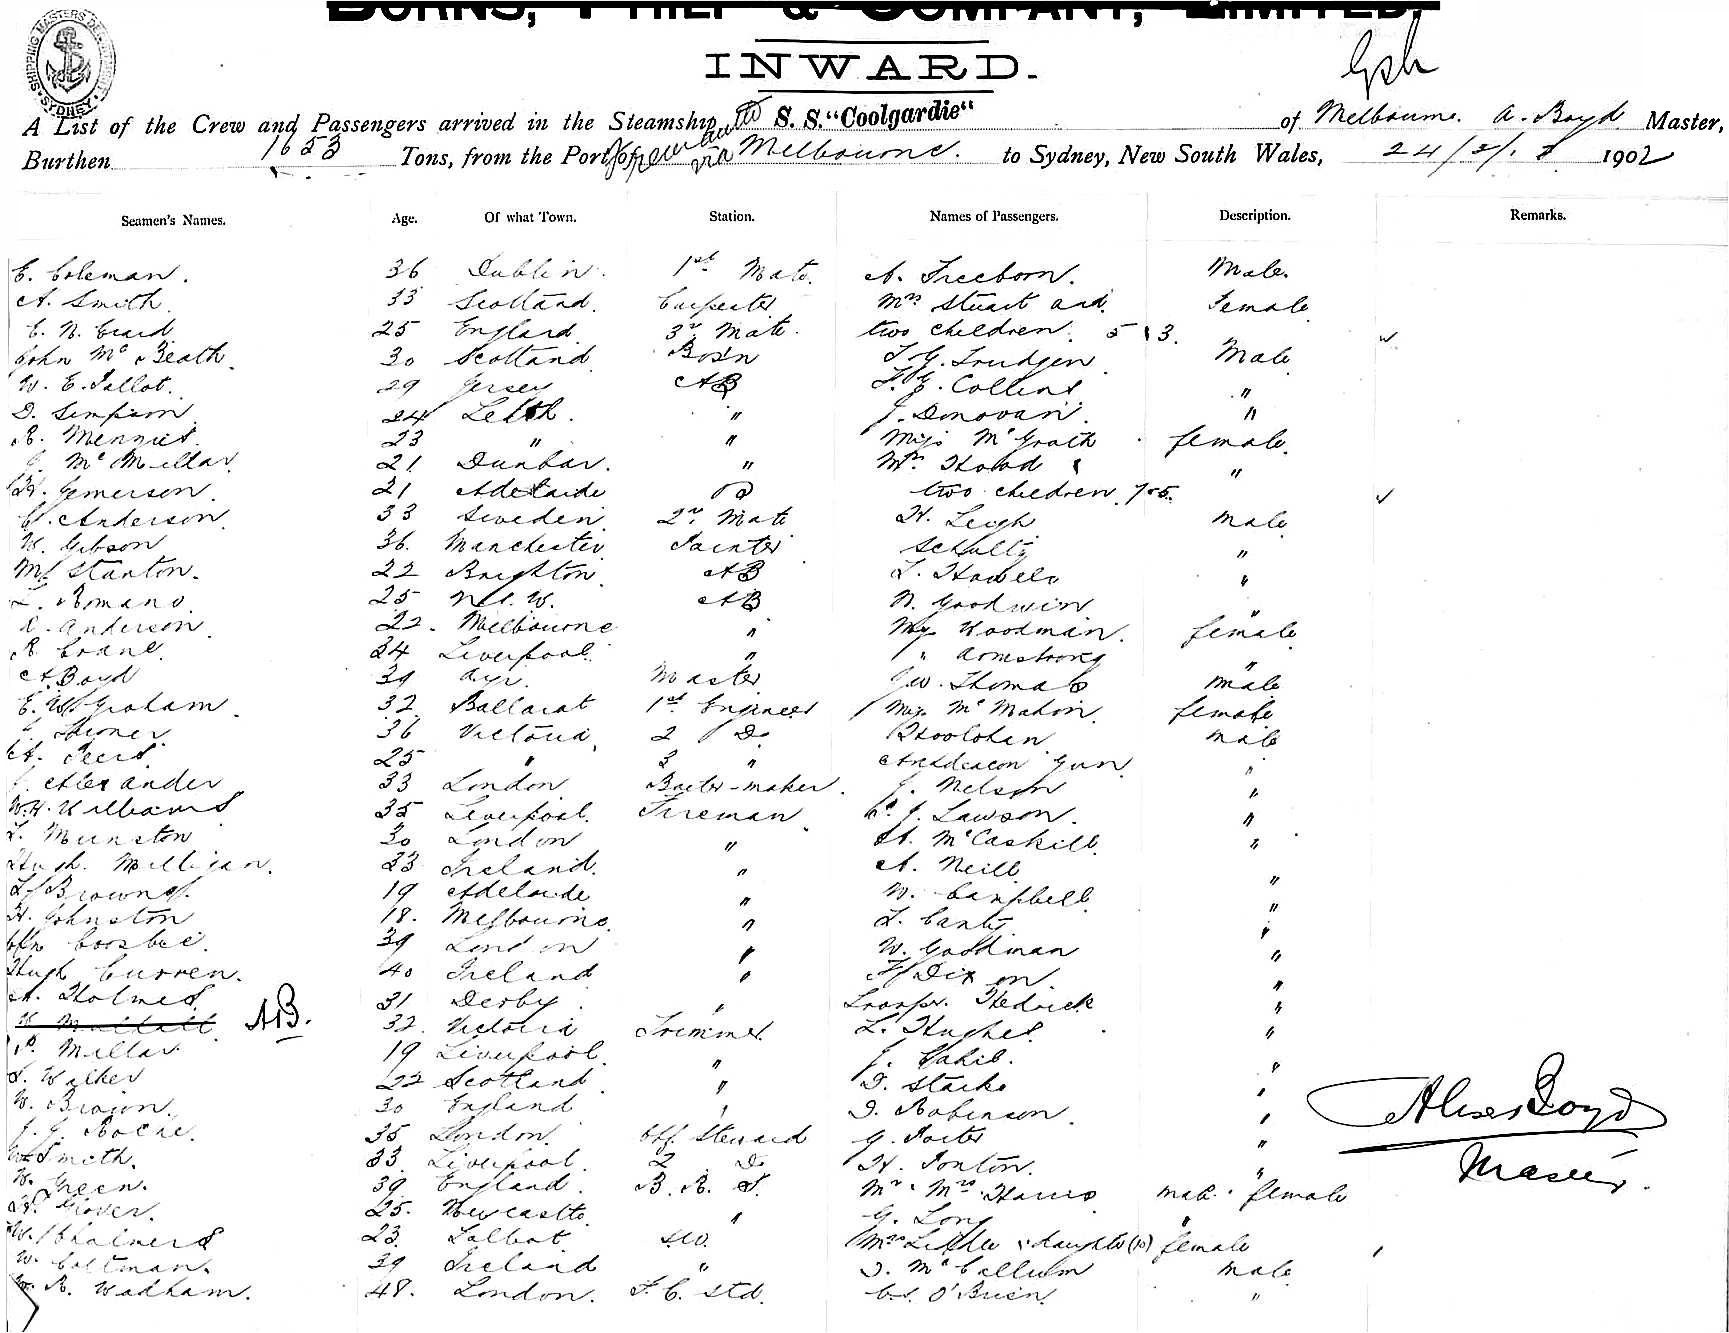 BURNS, PHILP & COMPANY, LIMITED.
INWARD.
SHIPPING MASTERS DEPARTMENT SYDNEY
A List of the Crew and Passengers arrived in the Steamship S. S. "Coolgardie" of Melbourne. A. Boyd Master,
Burthen 1653 Tons, from the Port of Fremantle via Melbourne. to Sydney, New South Wales, 24/2/ 1902
Seamen's Names. Age. Of what Town. Station. Names of Passengers. Description. Remarks.
E. Coleman. 36 Dublin. 1st Mate. A. Freeborn. Male.
A. Smith 33 Scotland. Carpenter Mrs Stuart and Female
C. N. 25 England. 3r. Mate. two children. 5 3.
John Mc Beath. 30 Scotland Bos'n T. G. Trudgen Male
W. E. Tallot. 29 Jersey AB F. G. Collins "
D. Simpson 24 Leith. " J. Donovan. "
R. Mennies. 23 " " Miss McGrath female.
J. McMillar. 21 Dunbar. " Mrs Hood & "
H. Jemerson. 21 Adelaide two children. 7 & 5.
C. Anderson. 33 Sweden. 2nd Mate H. Leigh male
W. Gibson 36. Manchester. Painter Schultz "
M. Stanton. 22 Brighton. AB T. Howell "
L. Romano. 25 N.S.W. AB N. Goodwin "
A. Anderson. 22. Melbourne " Miss Woodman. female.
R. Crane. 24 Liverpool. " " Armstrong "
A. Boyd 39 Ayr. Master J. W. Thomas male
E. W. Graham. 32 Ballarat 1st Engineer Miss McMahon. female
36 Victoria. 2 Do Hoolohan. male
A. Peers. 25 " 3 " Archdeacon Gun. "
J. Alexander 33 London Boiler-maker. J. Nelson "
W. H. Williams 35 Liverpool. Fireman. C. J. Lawson. "
T. Munston 30 London " H. McCaskill. "
Hugh. Milligan. 23 Ireland. " A. Neill "
T. Browne. 19 Adelaide " W. Campbell "
H. Johnston 18. Melbourne. " T. Canty "
39 London " W. Goodman "
Hugh Curren. 40 Ireland " F. Dixon. "
A. Holmes AB. 31 Derby. " Trooper. Hedrick "
32. Victoria Trimmer. L. Hughes. "
R. Millar 19 Liverpool. " J. Cahil. "
S. Walker 22 Scotland " D. Starke "
W. Brown. 30 England " D. Robinson. "
J. J. Roche. 35 London. Chf. Steward G. Porter "
W. Smith. 33 Liverpool. 2 Do H. Ponton. "
W. Green. 39 England. B. R. S. Mr & Mrs Harris male & female
H. Glover. 25. Newcastle. " G. Long "
W. Chalmers 23. Talbot Mrs & daughter (10) female
W. Coltman. 39 Ireland " D. McCallum male
W. R. Wadham. 48. London. F. C. Std. C. O'Brien. "
Alexr Boyd
Master.